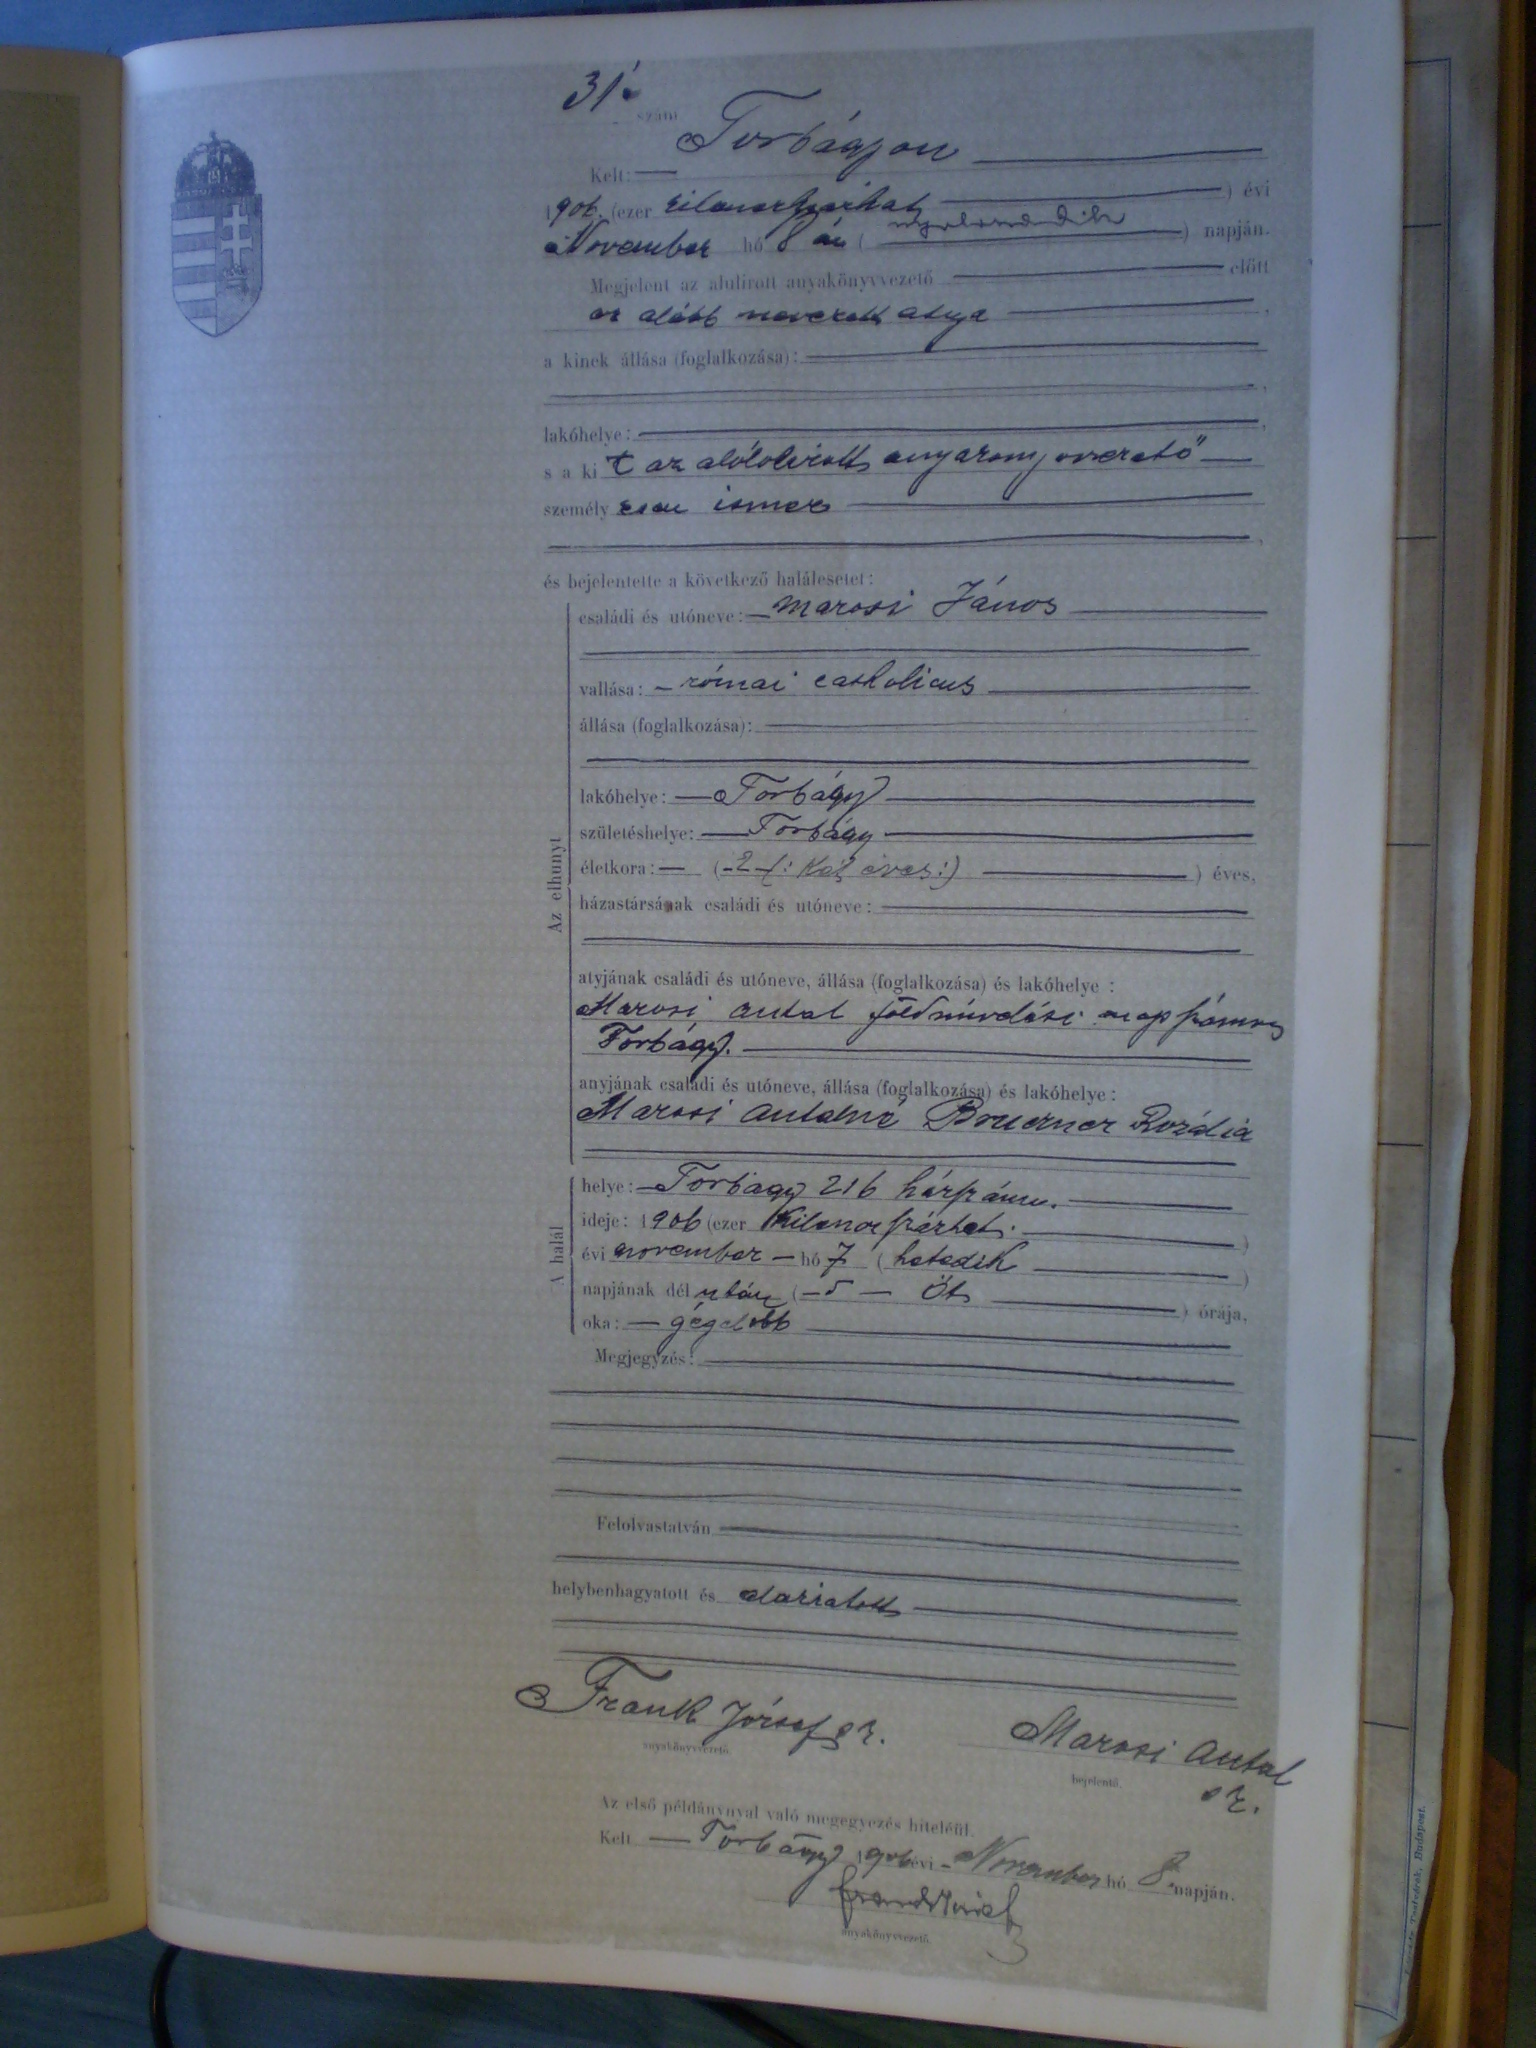 31.
szám
Kelt: Torbágyon
1906. (ezer kilencszázhat ) évi
November hó 8 án ( nyolcadik ) napján.
Megjelent az alulirott anyakönyvvezető előtt
az alább nevezett atyja ,
a kinek állása (foglalkozása):
,
lakóhelye: ,
s a ki t az alólolirott
személy esen ismer
,
és bejelentette a következő halálesetet:
Az elhunyt
családi és utóneve: Marosi János
vallása: római catholicus
állása (foglalkozása):
lakóhelye: Torbágy
születéshelye: Torbágy
életkora: (-2-/: Két éves:) ) éves,
házastársának családi és utóneve:
atyjának családi és utóneve, állása (foglalkozása) és lakóhelye :
Marosi Antal földmívelési napszámos
Torbágy.
anyjának családi és utóneve, állása (foglalkozása) és lakóhelye:
Marosi Antalné Rozália
A halál
helye: Torbágy 216 házszám.
ideje: 1906 (ezer Kilencszázhat. )
évi november hó 7 ( hetedik )
napjának dél után ( - 5 - Öt ) órája,
oka: gégelobb
Megjegyzés:
Felolvastatván
helybenhagyatott és aláriatott
Frank József sk.
anyakönyvvezető.
Marosi Antal
sk.
bejelentő.
Az első példánynyal való megegyezés hiteléül.
Kelt Torbágy 1906 évi November hó 8. napján.
Frank József
anyakönyvvezető.